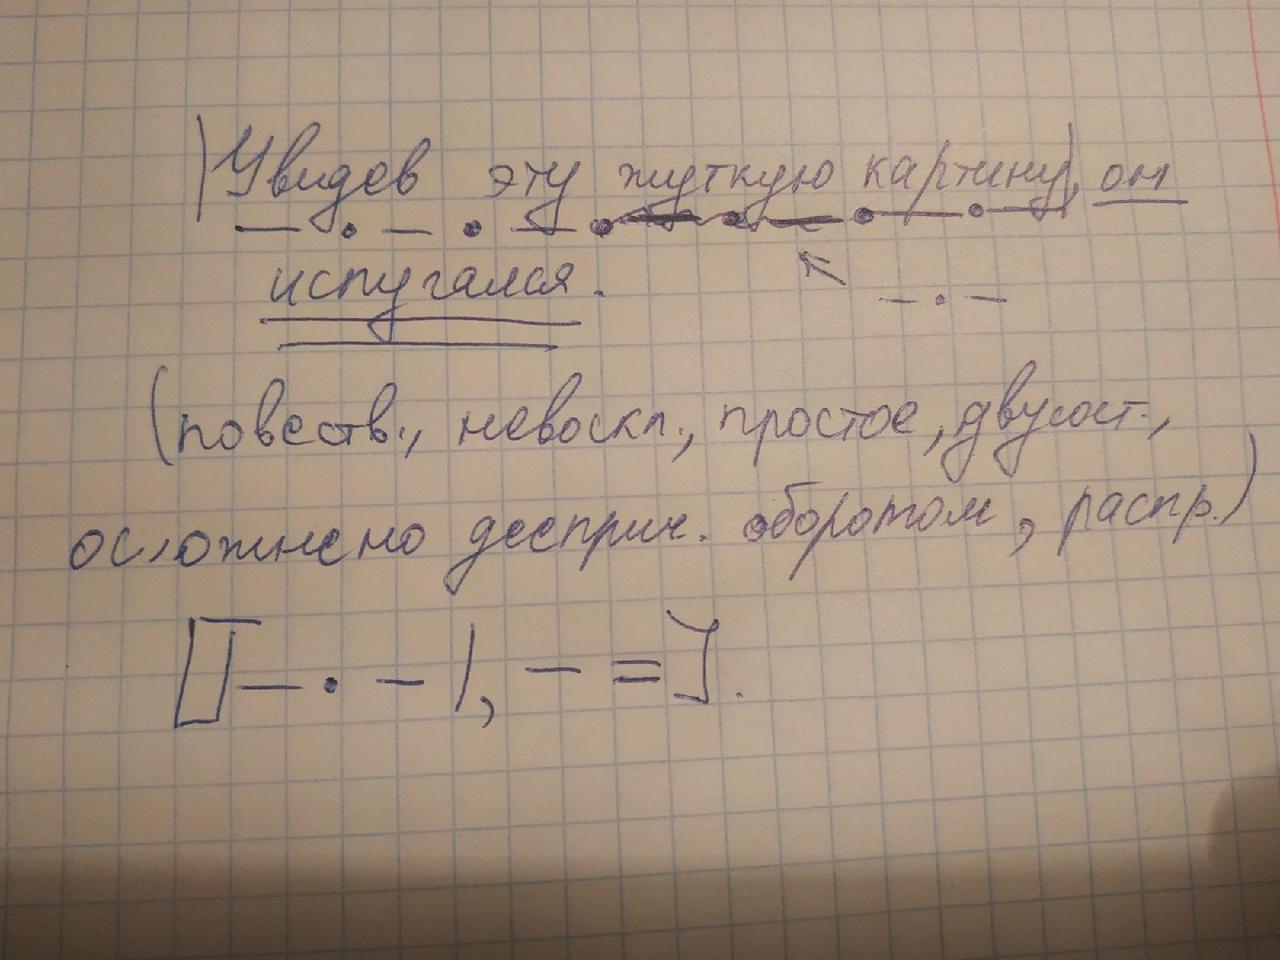 |Увидев эту жуткую картину|, он
испугался.
(повеств., невоскл., простое, двусост.,
осложнено дееприч. оборотом, распр.)
[|— • — |, — =].